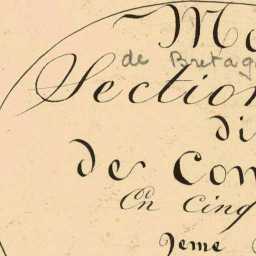 Mo
de Bretag
Section
di
de Con
En Cinq
2eme